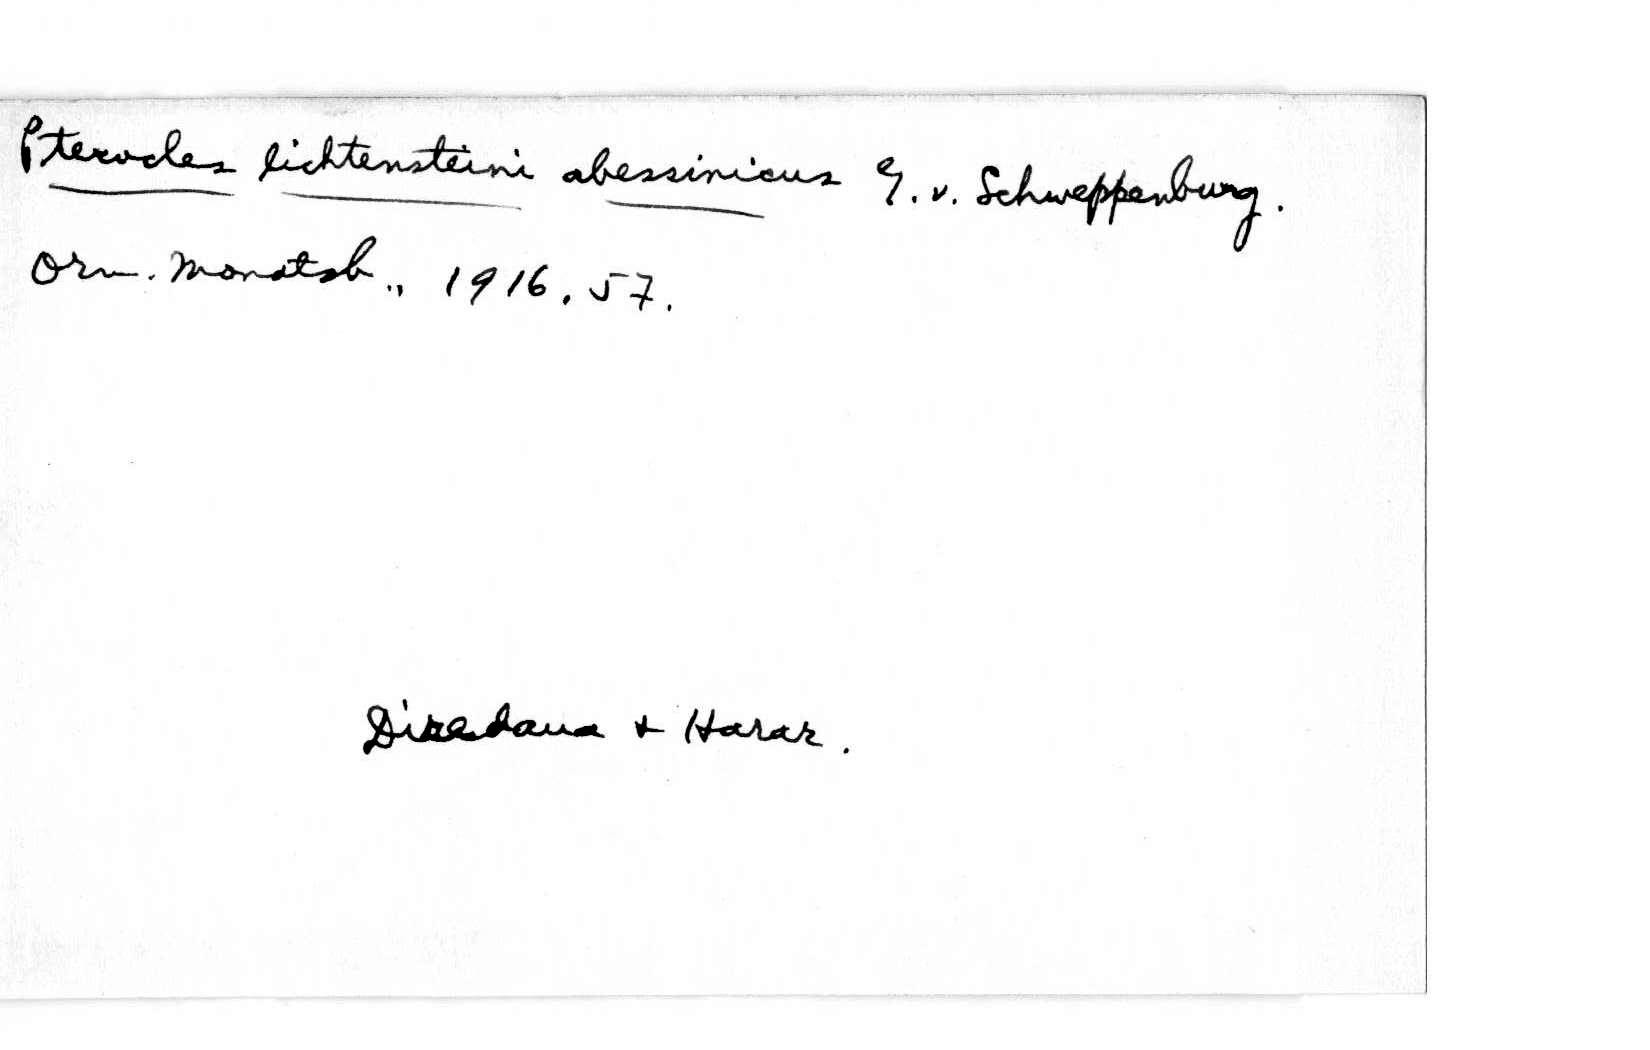 Pterocles lichtensteini abessinicus G. v. Schweppenburg.
Orn. Monatsb., 1916, 57.
Diredaua & Harar.